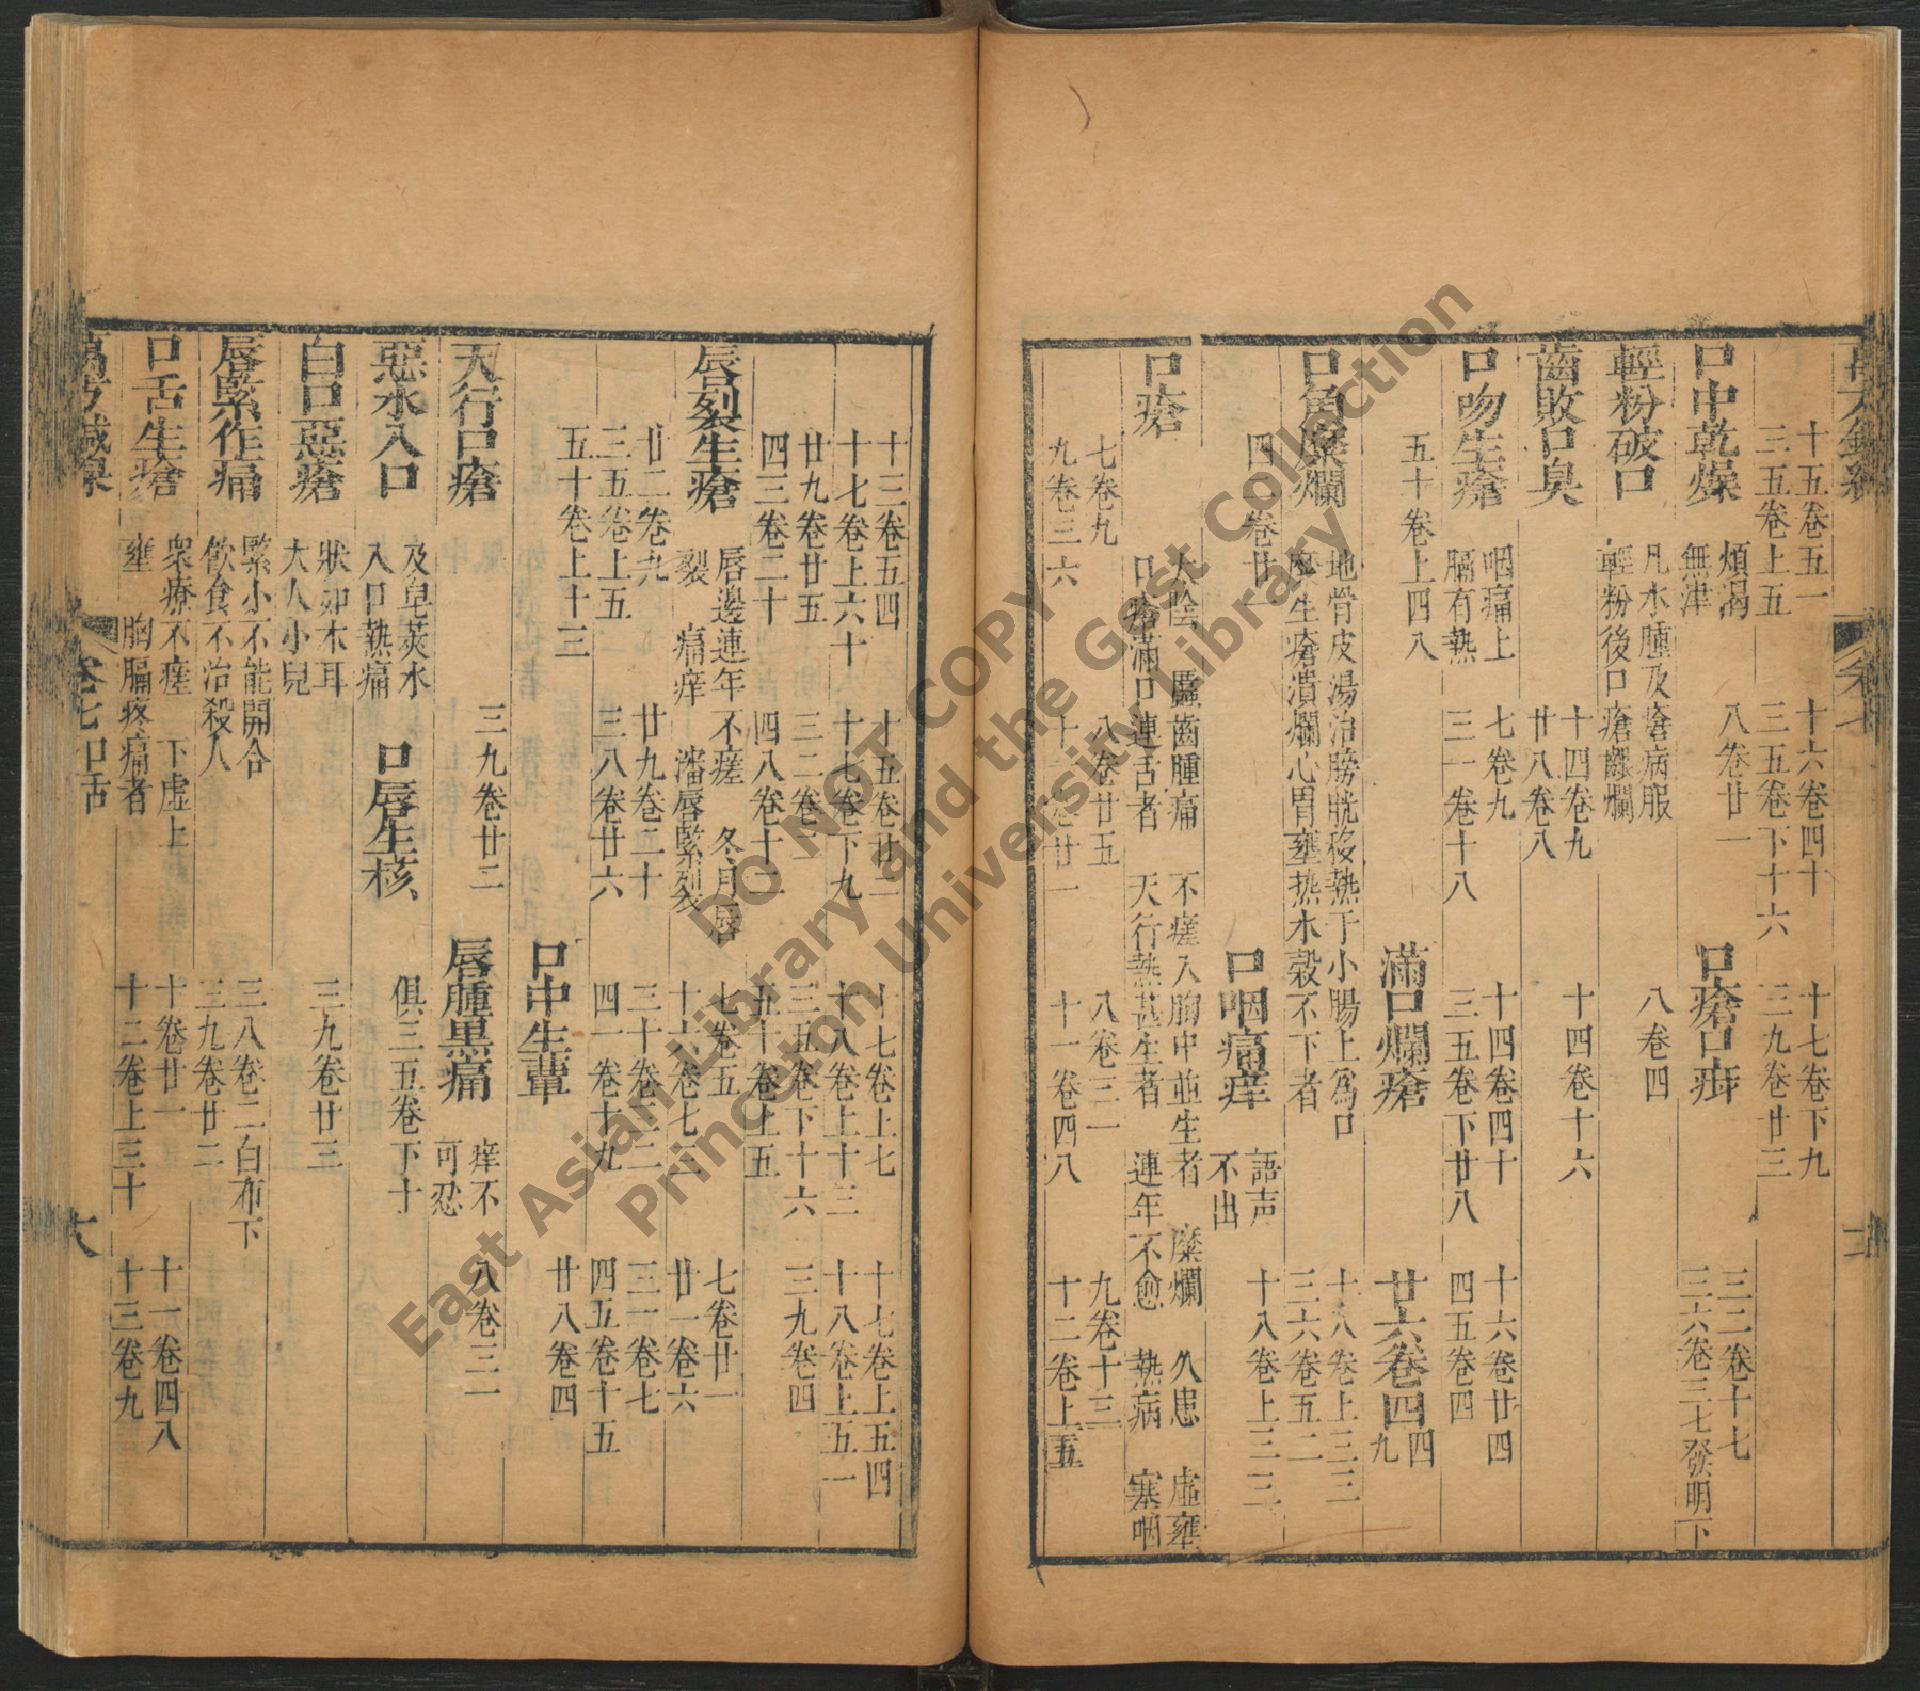 十五卷五一 十六卷四十 十七卷下九
三五卷上五 三五卷下十六 三九卷廿三
口中乾燥 煩渴 八卷廿一 口瘡口疳 三二卷十七
無津 三六卷三七發明下
輕粉破口 凡水腫及瘡病服 八卷四
輕粉後口瘡齦爛
齒敗口臭 十四卷九 十四卷十六
廿八卷八
口吻生瘡 咽痛上 七卷九 十四卷四十 十六卷廿四
膈有熱 三一卷十八 三五卷下廿八 四五卷四
五十卷上四八 滿口爛瘡 廿六卷四四
九
口角糜爛 地骨皮湯治膀胱移熱于小腸上爲口 十八卷上三三
糜生瘡潰爛心胃壅热水穀不下者 三六卷五二
四卷廿一 口咽痛痒 語声 十八卷上三三
不出
口瘡 太陰 䘌齒腫痛 不瘥入胸中並生者 糜爛 久患 虛壅
口瘡滿口連舌者 天行熱甚生者 連年不愈 熱病 寒咽
七卷九 八卷廿五 八卷三一 九卷十三
九卷三六 十一卷四八 十二卷上五
十三卷五四 十五卷廿二 十七卷上七 十七卷上五四
十七卷上六十 十七卷下九 十八卷上十三 十八卷上五一
廿九卷廿五 三五卷下十六 三九卷四
四三卷二十 四八卷十二 五十卷上五
唇裂生瘡 唇邊連年不瘥 冬月唇 七卷五 七卷廿一
裂 痛痒 瀋唇緊列 十六卷七三 廿一卷六
廿二卷九 廿九卷二十 三十卷二二 三一卷七
三五卷上五 三八卷廿六 四一卷十九 四五卷十五
五十卷上十三 口中生蕈 廿八卷四
天行口瘡 三九卷廿二 唇腫黒痛 痒不 八卷三二
可忍
惡水入口 及皁莢水 口唇生核 俱三五卷下十
入口熱痛
白口惡瘡 狀如木耳 三九卷廿三
大人小兒
唇緊作痛 緊小不能開合 三八卷二白布下
飲食不治殺人 三九卷廿二
口舌生瘡 衆療不瘥 下虛上 十卷廿一 十一卷四八
壅 胸膈疼痛者 十二卷上三十 十三卷九
萬方鍼線 卷七口舌 六
DO NOT COPY
East Asian Library and the Gest Collection
Princeton University Library